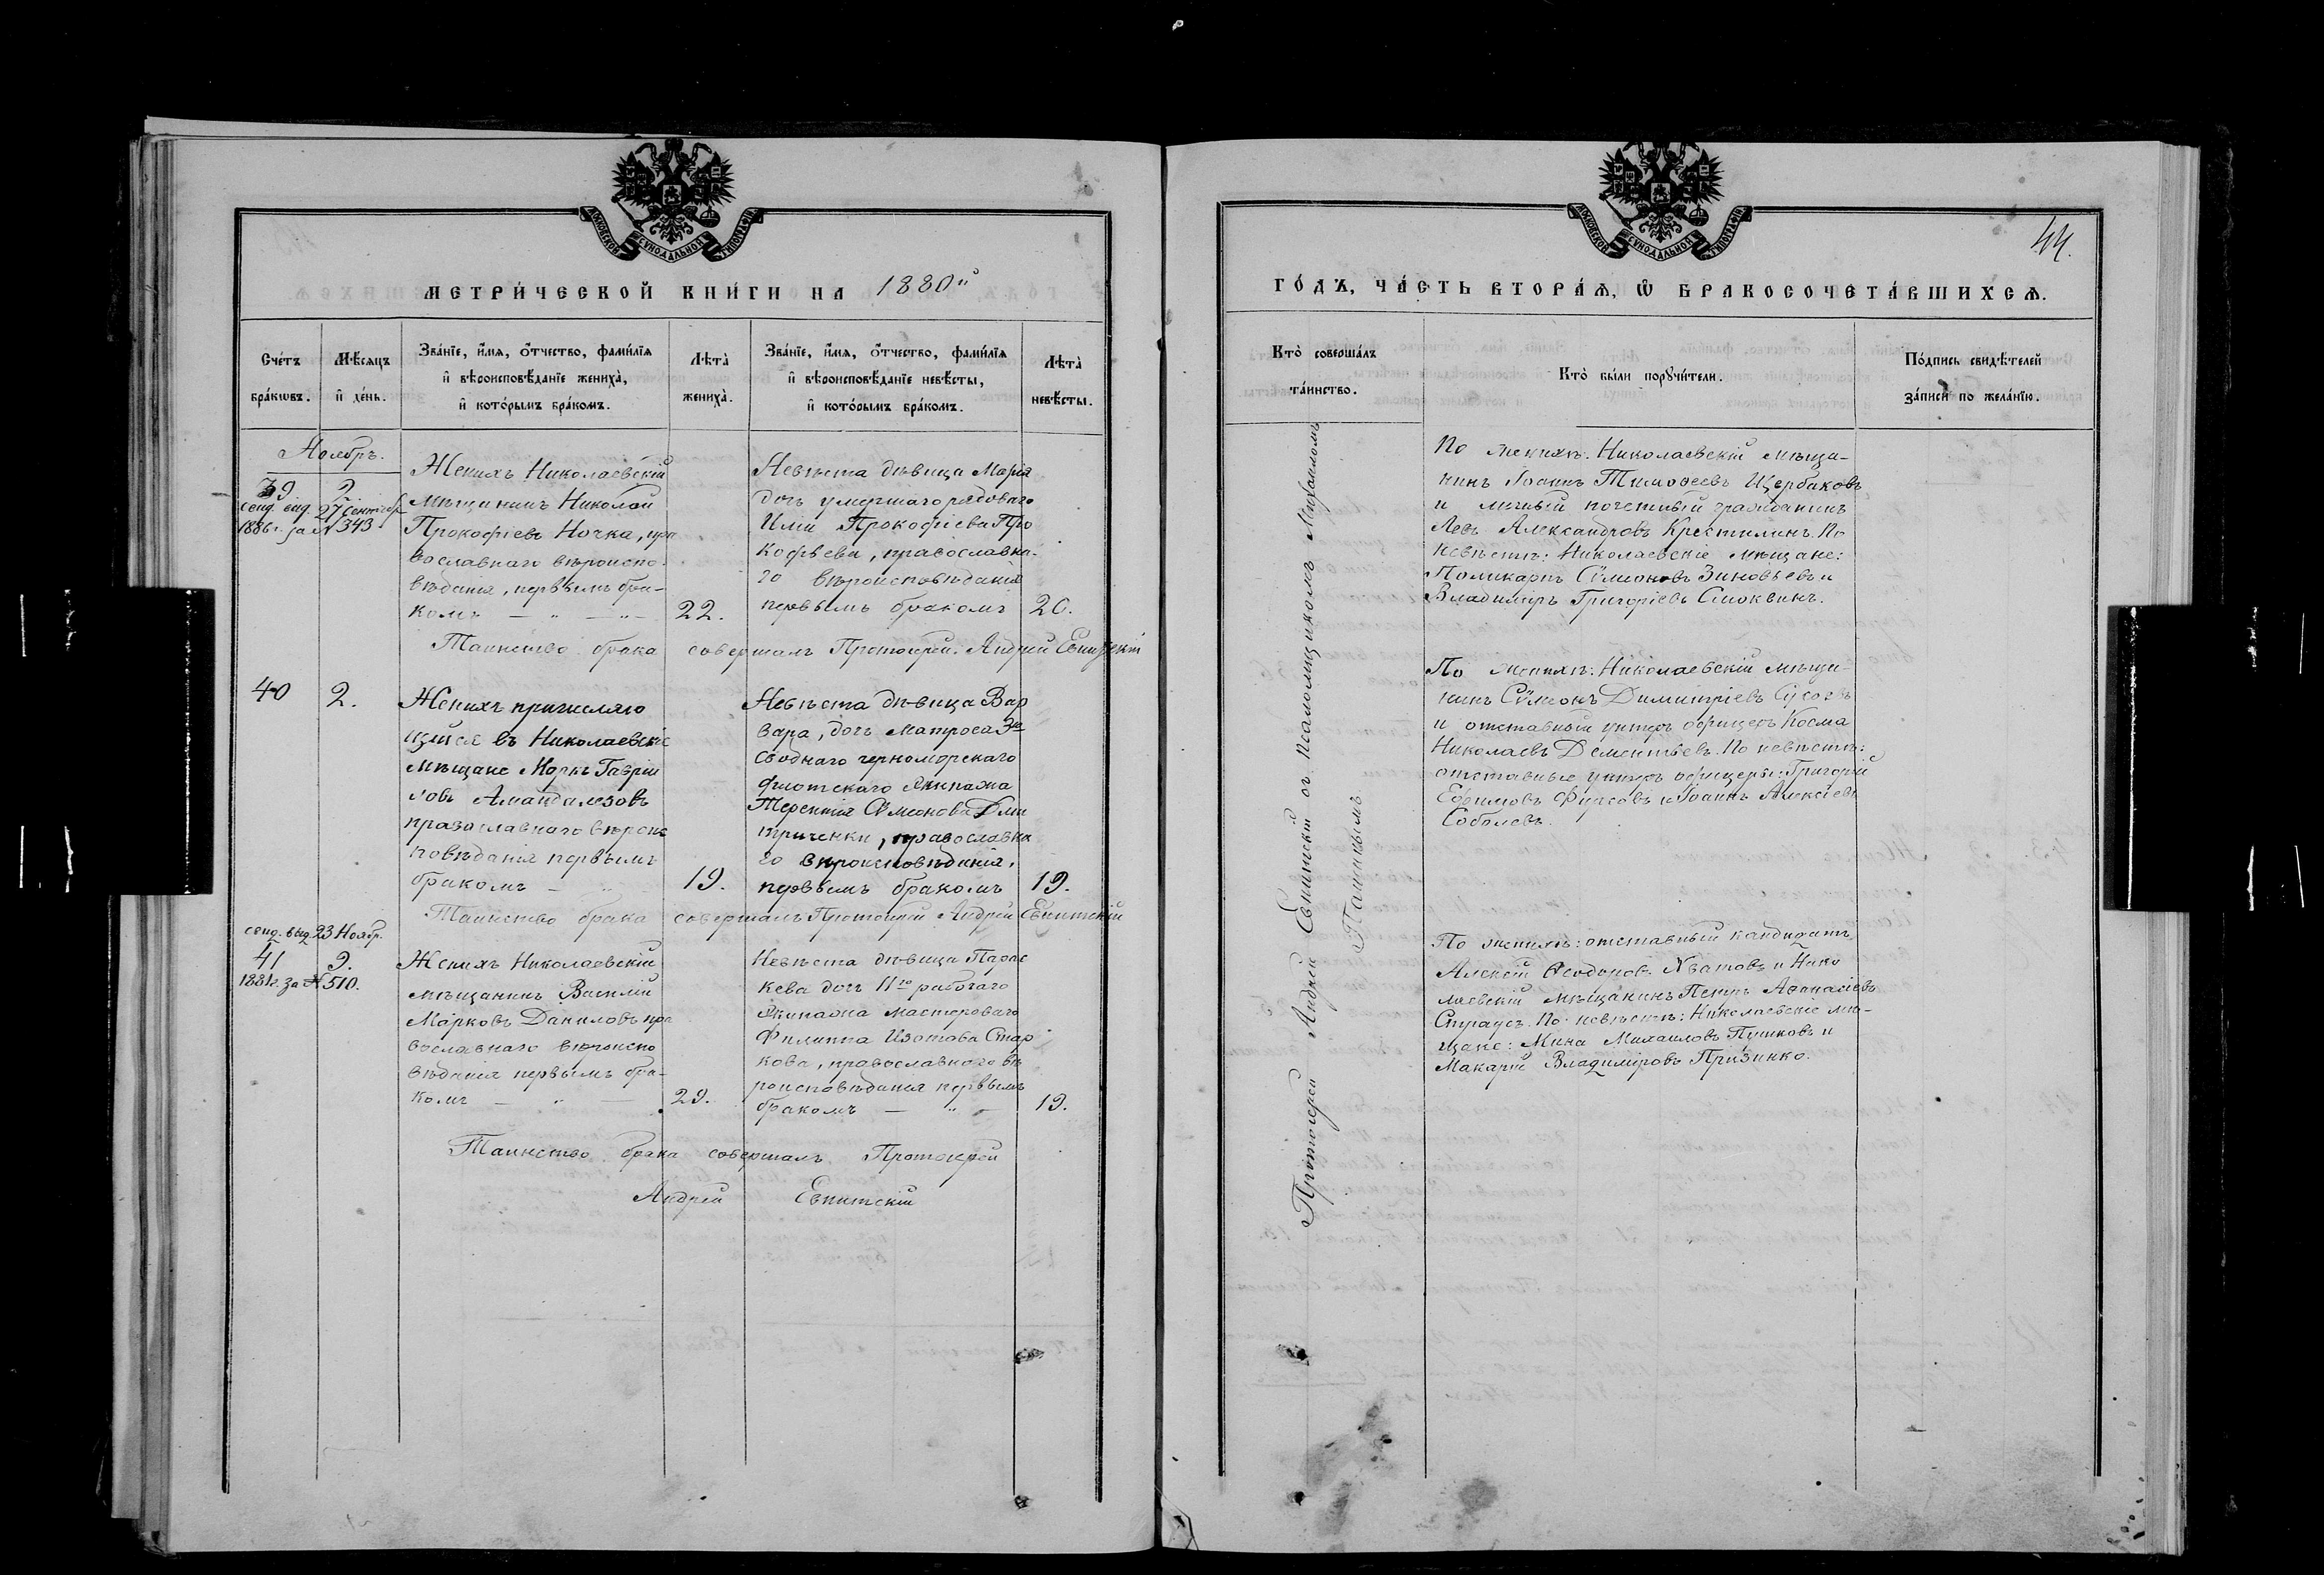 МОСКОВСКОЙ СУНОДАЛЬНОЙ ТИПОГРАФІИ
МЕТРИ́ЧЕСКОЙ КНИ́ГИ НА 1880й
Сче́тъ бра́кѡвъ.
Мѣ́сяцъ и҆ де́нь.
Зва́нїе, и҆́мя, ѻ҆́тчество, фами́лїя и҆ вѣроисповѣ́данїе жениха̀, и҆ кото́рымъ бра́комъ.
Лѣта̀ жениха̀.
Зва́нїе, и҆́мя, ѻ҆́тчество, фами́лїя и҆ вѣроисповѣ́данїе невѣ́сты, и҆ кото́рымъ бра́комъ.
Лѣта̀ невѣ́сты.
Ноябрь.
39
2
27 Сентябр
1886г. за № 343
Женихъ Николаевскій
мѣщанинъ Николай
Прокофіевъ Ночка, пра
вославнаго вѣроиспо-
вѣданія, первымъ бра-
комъ — „ —
22.
Невѣста дѣвица Марія
дочь умершаго рядоваго
Прокофіева Про
кофьева, православна-
го вѣроисповѣданія
первымъ бракомъ
20.
Таинство брака совершалъ Протоіерей Андрей Евнитскій
40
2.
Женихъ причисляю
щійся въ Николаевскіе
мѣщане Маркъ Гаврiи
ловъ
православнаго вѣроис
повѣданія первымъ
бракомъ — „
19.
Невѣста дѣвица Вар
вара, дочь матроса 3го
своднаго черноморскаго
флотскаго Экипажа
Терентія Сѵмеонова Дми
триченки, православна
го вѣроисповѣданія,
первымъ бракомъ
19.
Таинство брака совершалъ Протоіерей Андрей Евнитскій
выд. 23 Ноябр.
41
9.
1881г. за № 510.
Женихъ Николаевскій
мѣщанинъ Василій
Марковъ Даниловъ пра
вославнаго вѣроиспо
вѣданія первымъ бра-
комъ — „ —
29.
Невѣста дѣвица Парас
кева дочь 11го рабочаго
Экипажа мастероваго
Филиппа Изотова Стар
кова, православнаго вѣ
роисповѣданія первымъ
бракомъ — „ —
19.
Таинство брака совершалъ Протоіерей
Андрей Евнитскій
МОСКОВСКОЙ СУНОДАЛЬНОЙ ТИПОГРАФІИ
44.
ГО́ДЪ, ЧА́СТЬ ВТОРА́Я, Ѡ҆ БРАКОСОЧЕТА́ВШИХСЯ.
Кто̀ соверша́лъ та́инство.
Кто̀ бы́ли порꙋчи́тели.
По́дпись свидѣ́телей за́писи по жела́нїю.
Протоіерей Андрей Евнитскій съ псаломщикомъ Михаиломъ
По женихѣ: Николаевскій мѣща-
нинъ Іоаннъ Тимоѳеевъ Щербаковъ
и личный почетный гражданинъ
Левъ Александровъ Крестилинъ. По
невѣстѣ: Николаевскіе мѣщане:
Поликарпъ Сѵмеоновъ Зиновьевъ и
Владиміръ Григоріевъ Смоквинъ.
По женихѣ: Николаевскій мѣща-
нинъ Сѵмеонъ Димитріевъ Сусоевъ
и отставный унтеръ офицеръ Косма
Николаевъ Дементьевъ. По невѣстѣ:
отставные унтеръ офицеры: Григорій
Ефимовъ Фирсовъ и Іоаннъ Алексіевъ
Соболевъ.
По женихѣ: отставный кандидатъ
Алексій Ѳеодоровъ Хватовъ и Нико
лаевскій мѣщанинъ Петръ Аѳанасіевъ
Страусъ. По невѣстѣ: Николаевскіе мѣ-
щане: Мина Михаиловъ Пушковъ и
Макарій Владиміровъ Призинко.